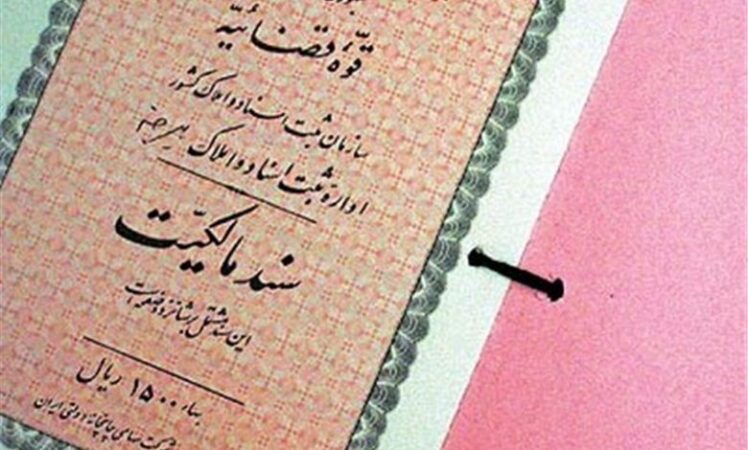 قوّهٔ قضائیّه
سازمان ثبت اسناد و املاک کشور
ادارهٔ ثبت اسناد و املاک
سند مالکیّت
این سند مشتمل بر شانزده صفحه است
بهاء ۱۵۰۰ ریال
شرکت سهامی چاپخانه دولتی ایران